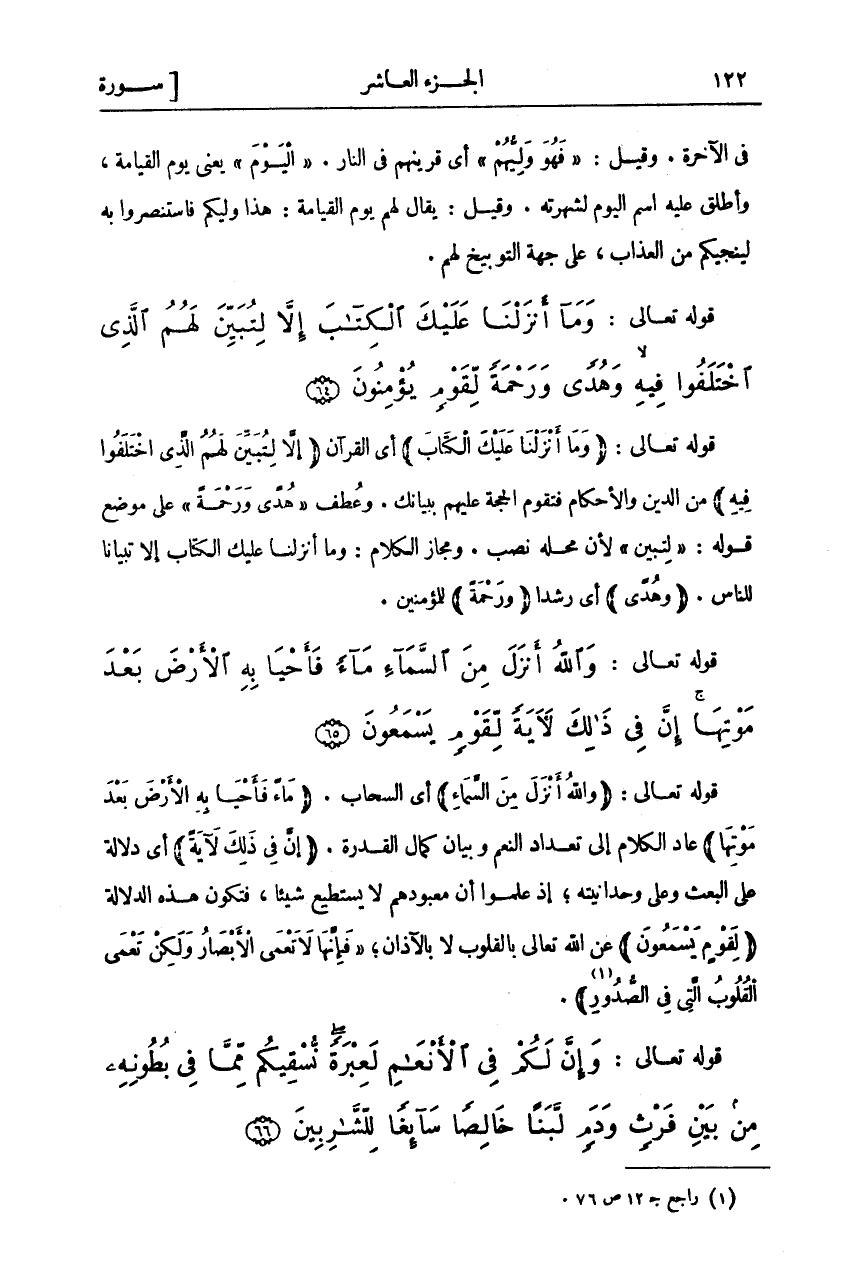 ١٢٢ الجـزء العاشر [ ســورة
فى الآخرة . وقيـل : « فَهُوَ وَلِيُّهُمْ » أى قرينهم فى النار . « الْيَـوْمَ » يعنى يوم القيامة ،
وأطلق عليه اسم اليوم لشهرته . وقيـل : يقال لهم يوم القيامة : هذا وليكم فاستنصروا به
لينجيكم من العذاب ، على جهة التوبيخ لهم .
قوله تعـالى : وَمَآ أَنزَلْنَـا عَلَيْكَ ٱلْكِتَـٰبَ إِلَّا لِتُبَيِّنَ لَهُـمُ ٱلَّذِى
ٱخْتَلَفُوا فِيهِ ۙ وَهُدًى وَرَحْمَةً لِّقَوْمٍ يُؤْمِنُونَ ﴿٦٤﴾
قوله تعـالى : ﴿ وَمَا أَنْزَلْنَا عَلَيْكَ الْكِتَابَ ﴾ أى القرآن ﴿ إِلَّا لِتُبَيِّنَ لَهُمُ الَّذِى اخْتَلَفُوا
فِيهِ ﴾ من الدين والأحكام فتقوم الحجة عليهم ببيانك . وعُطف « هُدًى وَرَحْمَـةً » على موضع
قـوله : « لِتبين » لأن محـله نصب . ومجاز الكلام : وما أنزلنـا عليك الكتاب إلا تبيانا
للناس . ﴿ وهُدًى ﴾ أى رشدا ﴿ ورَحْمَةً ﴾ للمؤمنين .
قوله تعـالى : وَٱللَّهُ أَنزَلَ مِنَ ٱلسَّمَآءِ مَآءً فَأَحْيَا بِهِ ٱلْأَرْضَ بَعْـدَ
مَوْتِهَـا ۚ إِنَّ فِى ذَٰلِكَ لَآيَةً لِّقَوْمٍ يَسْمَعُونَ ﴿٦٥﴾
قوله تعـالى : ﴿ واللهُ أَنْزَلَ مِنَ السَّمَاءِ ﴾ أى السحاب . ﴿ مَاءً فَأَحْيَـا بِهِ الْأَرْضَ بَعْدَ
مَوْتِهَا ﴾ عاد الكلام إلى تعـداد النعم وبيان كمال القـدرة . ﴿ إِنَّ فِى ذَلِكَ لَآيَةً ﴾ أى دلالة
على البعث وعلى وحدانيته ؛ إذ علمـوا أن معبودهم لا يستطيع شيئا ، فتكون هـذه الدلالة
﴿ لِقَوْمٍ يَسْمَعُونَ ﴾ عن الله تعالى بالقلوب لا بالآذان ؛ « فَإِنَّهَا لَا تَعْمَى الْأَبْصَارُ وَلَكِنْ تَعْمَى
الْقُلُوبُ الَّتِى فِى الصُّدُورِ (١) ﴾ .
قوله تعـالى : وَإِنَّ لَـكُمْ فِى ٱلْأَنْعَـٰمِ لَعِبْرَةً ۖ نُّسْقِيكُم مِّمَّا فِى بُطُونِهِۦ
مِنۢ بَيْنِ فَرْثٍ وَدَمٍ لَّبَنًا خَالِصًا سَآئِغًا لِّلشَّـٰرِبِينَ ﴿٦٦﴾
(١) راجع جـ ١٢ ص ٧٦ .